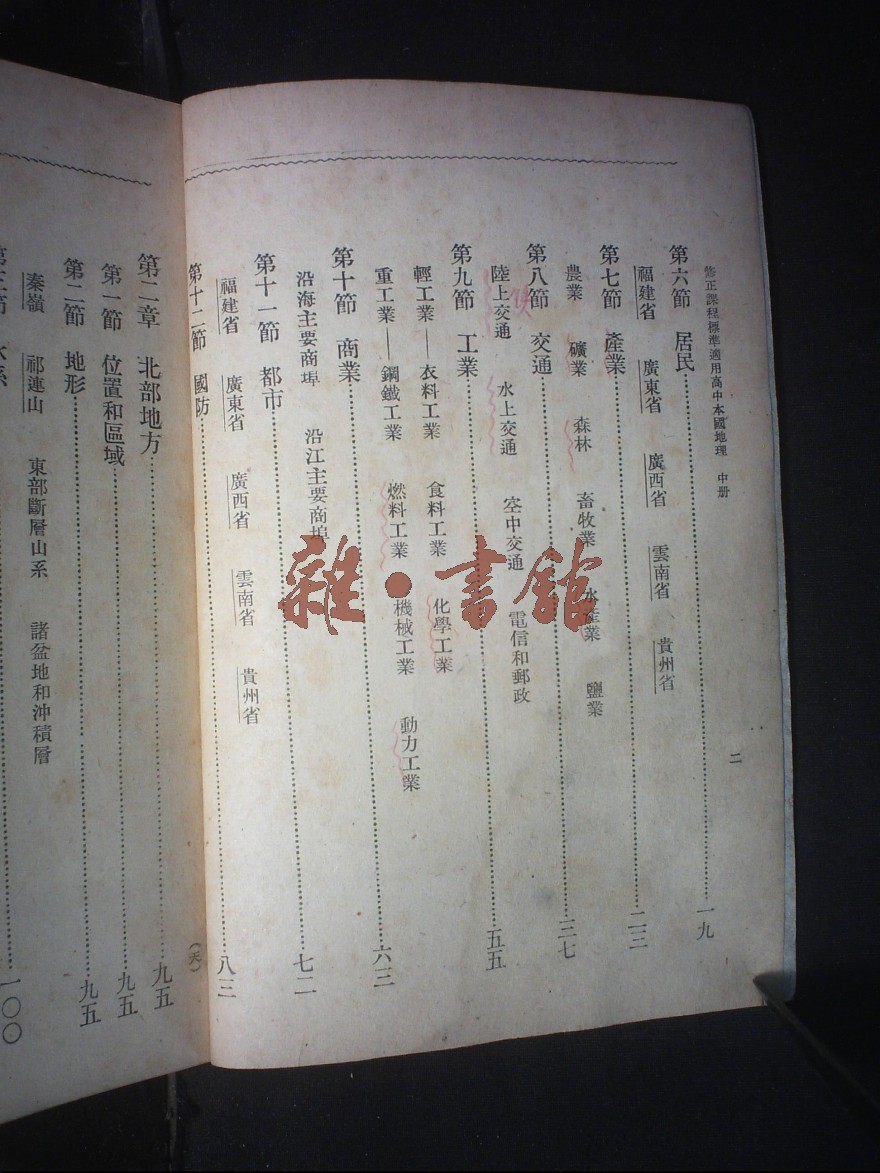 修正課程標準適用高中本國地理 中册 二
第六節 居民……一九
福建省 廣東省 廣西省 雲南省 貴州省
第七節 產業……二三
農業 礦業 森林 畜牧業 水產業 鹽業
第八節 交通……三七
陸上交通 水上交通 空中交通 電信和郵政
第九節 工業……五五
輕工業——衣料工業 食料工業 化學工業
重工業——鋼鐵工業 燃料工業 機械工業 動力工業
第十節 商業……六三
沿海主要商埠 沿江主要商埠
第十一節 都市……七二
福建省 廣東省 廣西省 雲南省 貴州省
第十二節 國防……八三
(天)
第二章 北部地方……九五
第一節 位置和區域……九五
第二節 地形……九五
秦嶺 祁連山 東部斷層山系 諸盆地和沖積層
第三節 水系……一〇〇
雜·書館